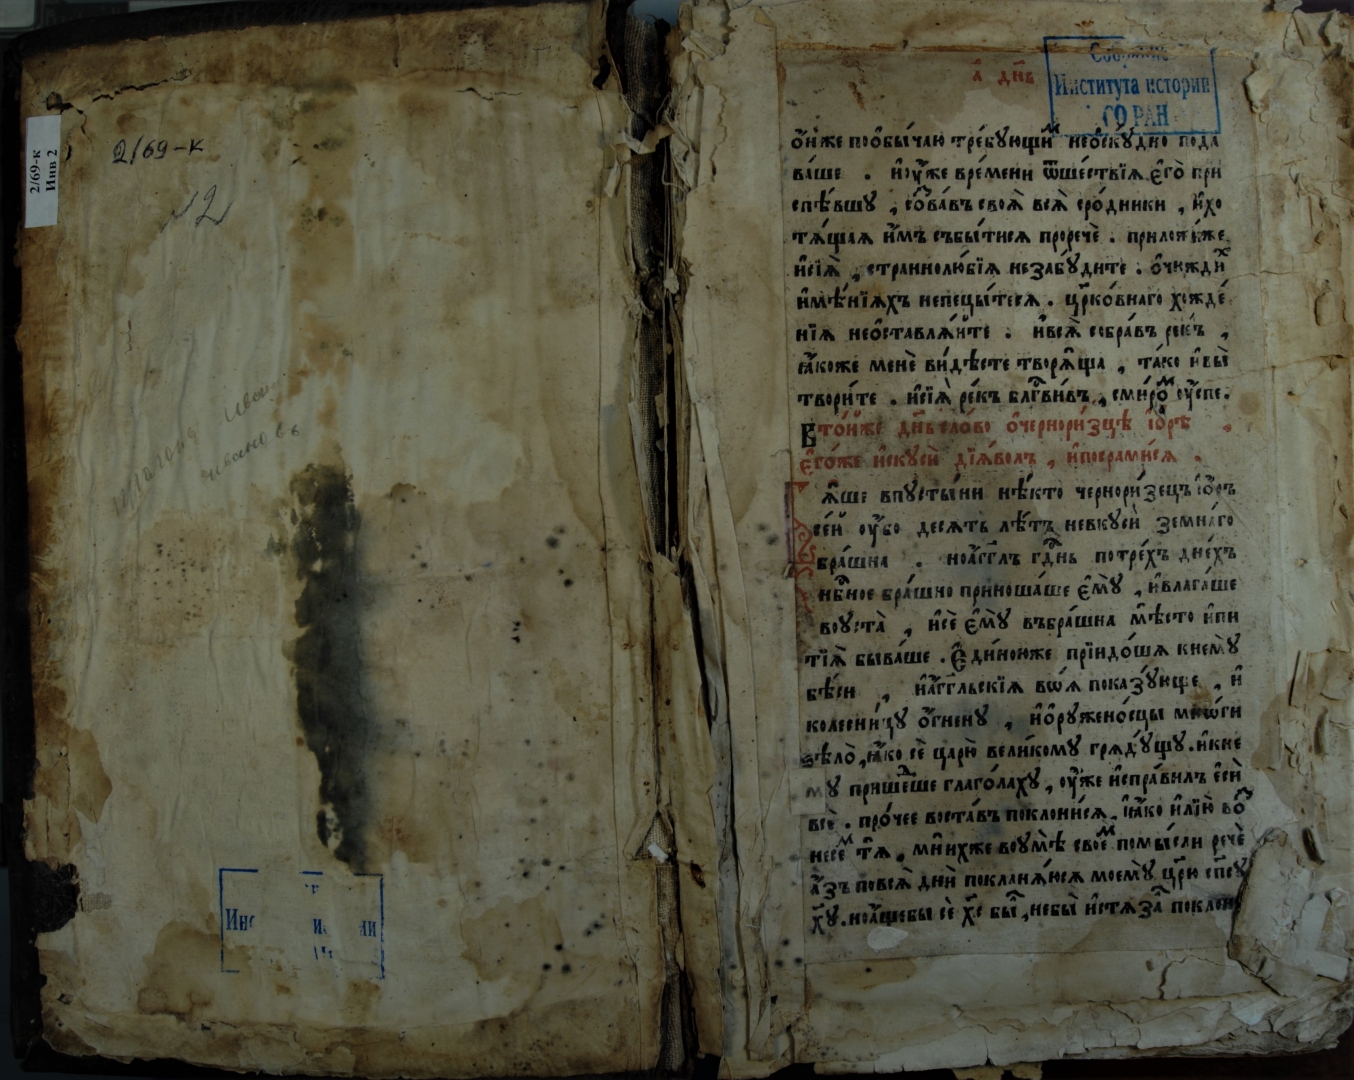 2/69-к
Инв 2
2/69-к
№2
Иван
Иванов
Инс и ии
а҃ дн҃ь
Собрание
Института истории
СО РАН
ѻ҆́нже поѻ҆бы́чаю тре́бующимъ неѻ҆ску́дно пода
ва́ше . и҆ оу҆́же вре́мени ѿше́ствїѧ є҆го̀ при
спѣ́вшу , созва́въ своѧ̀ всѧ̀ сро́дники , и҆ хо
тѧ́щаѧ и҆̀мъ събы́тисѧ проречѐ . приложи́же
и҆сїѧ̀ , страннолю́бїѧ незабу́дите . ѻ҆чюжди́хъ
и҆мѣ́нїѧхъ непецы́тесѧ . цр҃ко́внаго хожде́
нїѧ неѻ҆ставлѧ́йте . и҆ всѧ̀ собра́въ рекъ ,
ꙗ҆́коже менѐ ви́дѣсте творѧ́ща , та́ко и҆ вы̀
твори́те . и҆ сїѧ̀ ре́къ блг҃ви́въ , с ми́ромъ оу҆́спе .
В то́йже дн҃ь сло́во ѻ҆ чернори́зцѣ і҆ѻ҆рѣ .
є҆го́же и҆скусѝ дїѧ́волъ , и҆ посрами́сѧ .
ѧ҆́ше впусты́ни нѣ́кто чернори́зецъ і҆́ѻръ
се́й оу҆́бо де́сѧть лѣ́тъ невкусѝ земна́го
бра́шна . но а҆́гг҃лъ гд҃нь по тре́хъ дне́хъ
нбⷭ҇ное бра́шно приноша́ше є҆мꙋ̀ , и҆ влага́ше
воуста̀ , и҆ сѐ є҆мꙋ̀ въбра́шна мѣ́сто и҆ пи
тїѧ̀ быва́ше . Є҆ди́ноиже прїидо́шѧ к немꙋ̀
бѣ́си , и҆ а҆́гг҃льскїѧ во́ѧ показу́юще , и҆
колесни́цу ѻ҆́гнену , и҆ ѻ҆руженѻ́сцы мно́ги
ѕѣлѡ̀ , ꙗ҆́ко сѐ царю̀ вели́кому грѧду́щу . и҆ к не
му прише́дше глаго́лаху , оу҆́же и҆спра́вилъ є҆сѝ
всѐ . про́чее воста́въ поклони́сѧ . и҆ ꙗ҆́ко и҆лїю̀ во́з
несе́мъ тѧ̀ . мни́хже воумѣ̀ свое́мъ помы́сли речѐ
а҆́зъ по всѧ̀ днѝ покланѧ́юсѧ моемꙋ̀ цр҃ю̀ сп҃су
хꙋ҃ . но а҆́щебы сѐ хс҃ бы́лъ , не бы̀ и҆стѧза́лъ поклон